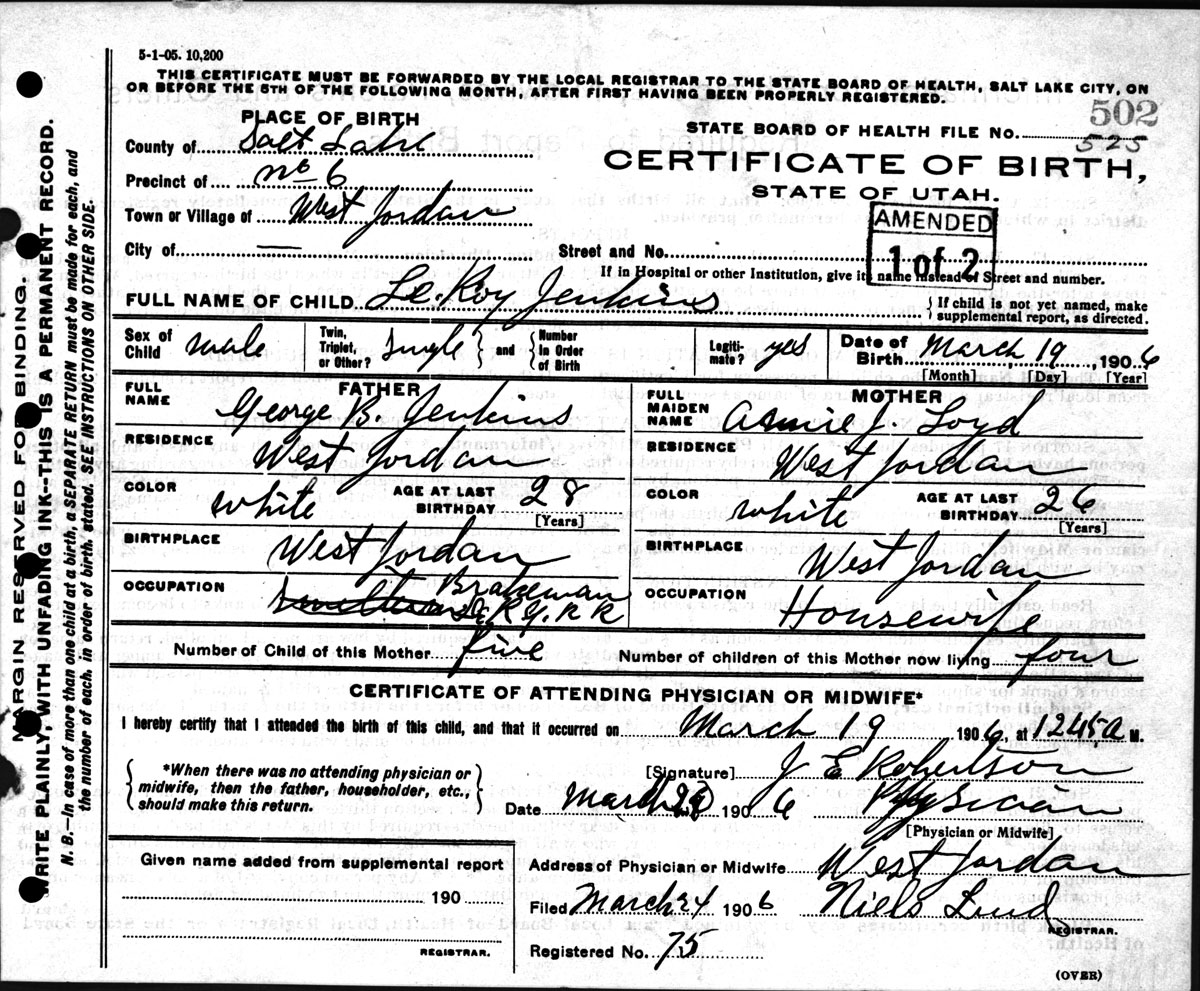 5-1-05. 10,200
THIS CERTIFICATE MUST BE FORWARDED BY THE LOCAL REGISTRAR TO THE STATE BOARD OF HEALTH, SALT LAKE CITY, ON
OR BEFORE THE 5TH OF THE FOLLOWING MONTH, AFTER FIRST HAVING BEEN PROPERLY REGISTERED.
502
PLACE OF BIRTH
STATE BOARD OF HEALTH FILE NO. 525
County of Salt Lake
CERTIFICATE OF BIRTH,
Precinct of no 6
STATE OF UTAH.
Town or Village of West Jordan
AMENDED
1 of 2
City of —
Street and No.
If in Hospital or other Institution, give its name instead of Street and number.
FULL NAME OF CHILD Le. Roy Jenkins
{ If child is not yet named, make
supplemental report, as directed.
Sex of Child male
Twin, Triplet, or Other? Single } and { Number In Order of Birth
Legiti- mate? yes
Date of Birth March 19, 1906
[Month] [Day] [Year]
FATHER
FULL NAME George B. Jenkins
MOTHER
FULL MAIDEN NAME Annie J. Loyd
RESIDENCE West Jordan
RESIDENCE West Jordan
COLOR white AGE AT LAST BIRTHDAY 28
[Years]
COLOR white AGE AT LAST BIRTHDAY 26
[Years]
BIRTHPLACE West Jordan
BIRTHPLACE West Jordan
OCCUPATION Brakeman
R R
OCCUPATION Housewife
Number of Child of this Mother five
Number of children of this Mother now living four
CERTIFICATE OF ATTENDING PHYSICIAN OR MIDWIFE*
I hereby certify that I attended the birth of this child, and that it occurred on March 19 1906, at 1245 a M.
{ *When there was no attending physician or
midwife, then the father, householder, etc.,
should make this return. }
[Signature] J E Robertson
Date March 190 6 Physician
[Physician or Midwife]
Given name added from supplemental report
190
REGISTRAR.
Address of Physician or Midwife West Jordan
Filed March 24 190 6 Niels Lind
REGISTRAR.
Registered No. 75
(OVER)
MARGIN RESERVED FOR BINDING.
WRITE PLAINLY, WITH UNFADING INK--THIS IS A PERMANENT RECORD.
N. B.—In case of more than one child at a birth, a SEPARATE RETURN must be made for each, and
the number of each, in order of birth, stated. SEE INSTRUCTIONS ON OTHER SIDE.